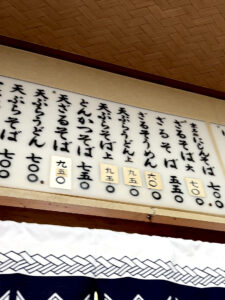 ざるそば 大 七〇〇
ざるそば 五五〇
ざるそうめん 六〇〇
天ぷらうどん 上 九五〇
天ぷらそば 上 九五〇
とんかつそば 九五〇
天ざるそば 九五〇
天ぷらうどん 七〇〇
天ぷらそば 七〇〇